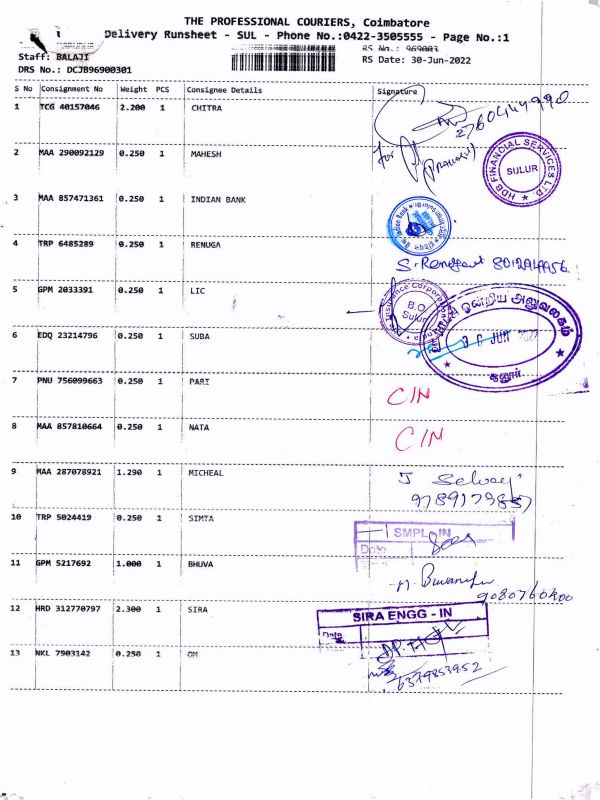 THE PROFESSIONAL COURIERS, Coimbatore
Delivery Runsheet - SUL - Phone No.:0422-3505555 - Page No.:1
RS No.: 969003
Staff: BALAJI
RS Date: 30-Jun-2022
DRS No.: DCJB96900301
S No Consignment No Weight PCS Consignee Details Signature
1 TCG 40157046 2.200 1 CHITRA
2 MAA 290092129 0.250 1 MAHESH
for
HDB FINANCIAL SERVICES LTD
SULUR
3 MAA 857471361 0.250 1 INDIAN BANK
4 TRP 6485289 0.250 1 RENUGA
5 GPM 2033391 0.250 1 LIC
Insurance Corporation
B.O
Sulur
ஒன்றிய அலுவலகம்
JUN 2022
சூலூர்
6 EDQ 23214796 0.250 1 SUBA
7 PNU 756099663 0.250 1 PARI
C/N
8 MAA 857810664 0.250 1 NATA
C/N
9 MAA 287078921 1.290 1 MICHEAL
9789179857
10 TRP 5024419 0.250 1 SIMTA
SMPL - IN
Date
11 GPM 5217692 1.000 1 BHUVA
12 HRD 312770797 2.300 1 SIRA
SIRA ENGG - IN
Date
13 NKL 7903142 0.250 1 OM
6379853952